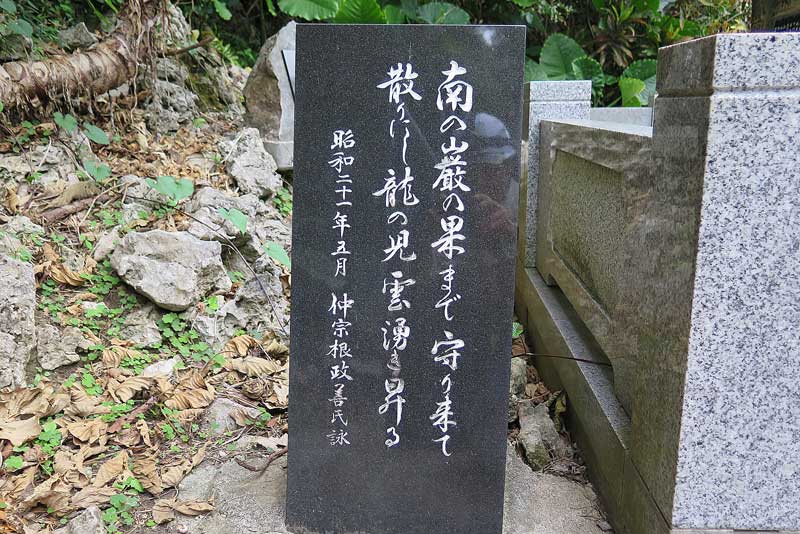 南の巌の果まで守り来て
散りにし龍の児雲湧き昇る
昭和二十一年五月 仲宗根政善氏詠